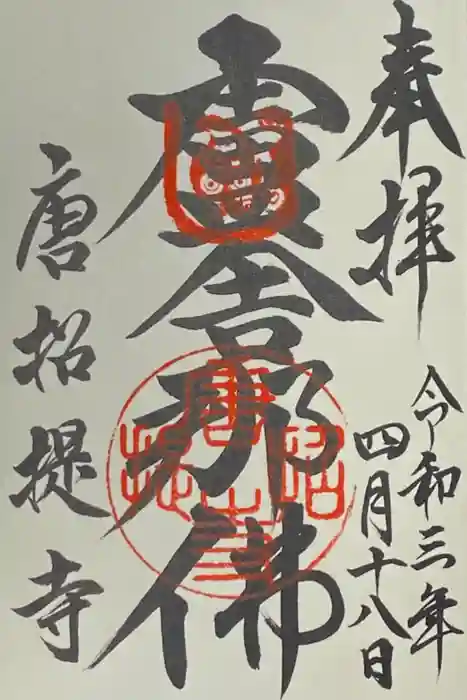 奉拝
令和三年
四月十八日
盧舎那佛
唐招提寺
唐招提寺